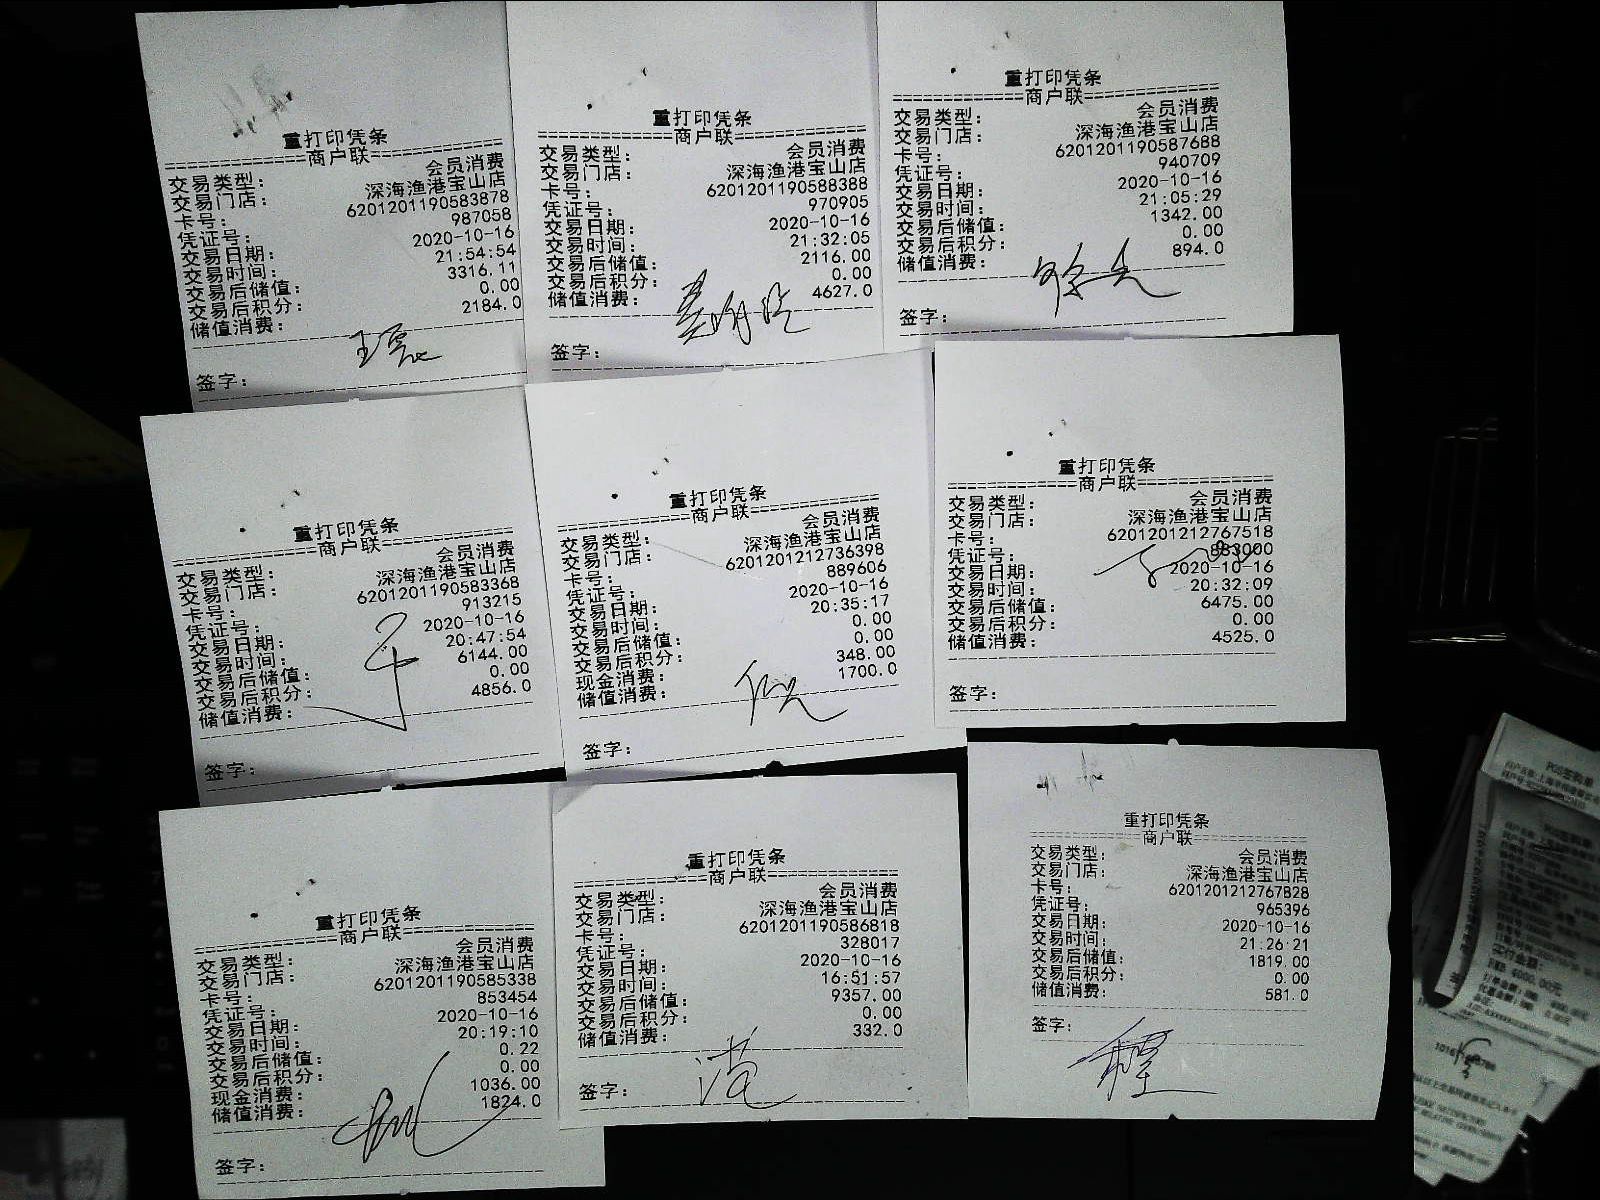 重打印凭条
商户联
交易类型： 会员消费
交易门店： 深海渔港宝山店
卡号： 6201201190583878
凭证号： 987058
交易日期： 2020-10-16
交易时间： 21:54:54
交易后储值： 3316.11
交易后积分： 0.00
储值消费： 2184.0
签字：
重打印凭条
商户联
交易类型： 会员消费
交易门店： 深海渔港宝山店
卡号： 6201201190588388
凭证号： 970905
交易日期： 2020-10-16
交易时间： 21:32:05
交易后储值： 2116.00
交易后积分： 0.00
储值消费： 4627.0
签字：
重打印凭条
商户联
交易类型： 会员消费
交易门店： 深海渔港宝山店
卡号： 6201201190587688
凭证号： 940709
交易日期： 2020-10-16
交易时间： 21:05:29
交易后储值： 1342.00
交易后积分： 0.00
储值消费： 894.0
签字：
重打印凭条
商户联
交易类型： 会员消费
交易门店： 深海渔港宝山店
卡号： 6201201190583368
凭证号： 913215
交易日期： 2020-10-16
交易时间： 20:47:54
交易后储值： 6144.00
交易后积分： 0.00
储值消费： 4856.0
签字：
重打印凭条
商户联
交易类型： 会员消费
交易门店： 深海渔港宝山店
卡号： 6201201212736398
凭证号： 889606
交易日期： 2020-10-16
交易时间： 20:35:17
交易后储值： 0.00
交易后积分： 0.00
现金消费： 348.00
储值消费： 1700.0
签字：
重打印凭条
商户联
交易类型： 会员消费
交易门店： 深海渔港宝山店
卡号： 6201201212767518
凭证号： 883000
交易日期： 2020-10-16
交易时间： 20:32:09
交易后储值： 6475.00
交易后积分： 0.00
储值消费： 4525.0
签字：
重打印凭条
商户联
交易类型： 会员消费
交易门店： 深海渔港宝山店
卡号： 6201201190585338
凭证号： 853454
交易日期： 2020-10-16
交易时间： 20:19:10
交易后储值： 0.22
交易后积分： 0.00
现金消费： 1036.00
储值消费： 1824.0
签字：
重打印凭条
商户联
交易类型： 会员消费
交易门店： 深海渔港宝山店
卡号： 6201201190586818
凭证号： 328017
交易日期： 2020-10-16
交易时间： 16:51:57
交易后储值： 9357.00
交易后积分： 0.00
储值消费： 332.0
签字：
重打印凭条
商户联
交易类型： 会员消费
交易门店： 深海渔港宝山店
卡号： 6201201212767828
凭证号： 965396
交易日期： 2020-10-16
交易时间： 21:26:21
交易后储值： 1819.00
交易后积分： 0.00
储值消费： 581.0
签字：